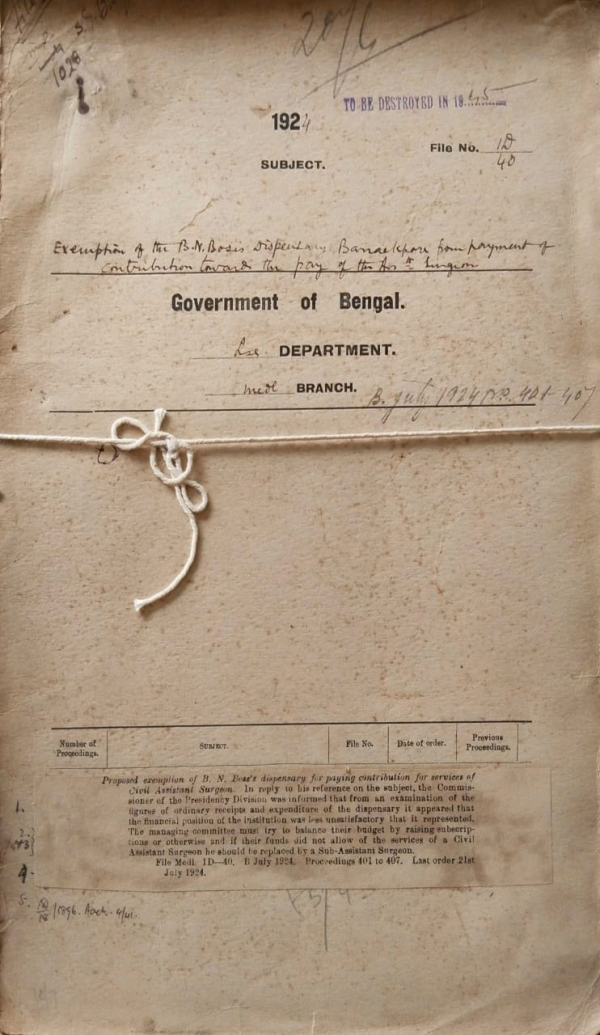 1028
TO BE DESTROYED IN 19 45
1924
File No. 1D
40
SUBJECT.
Exemption of the B.N. Bose's Dispensary Barrackpore from payment of
contribution towards the pay of the Asstt Surgeon
Government of Bengal.
DEPARTMENT.
Medl BRANCH.
B. July 1924 401-407
Number of Proceedings.
SUBJECT.
File No.
Date of order.
Previous Proceedings.
Proposed exemption of B. N. Bose's dispensary for paying contribution for services of
Civil Assistant Surgeon. In reply to his reference on the subject, the Commis-
sioner of the Presidency Division was informed that from an examination of the
figures of ordinary receipts and expenditure of the dispensary it appeared that
the financial position of the institution was less unsatisfactory that it represented.
The managing committee must try to balance their budget by raising subscrip-
tions or otherwise and if their funds did not allow of the services of a Civil
Assistant Surgeon he should be replaced by a Sub-Assistant Surgeon.
File Medl. 1D—40. B July 1924. Proceedings 401 to 407. Last order 21st
July 1924.
1.
2.
4.
5.